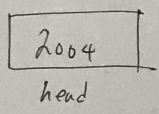 2004
head